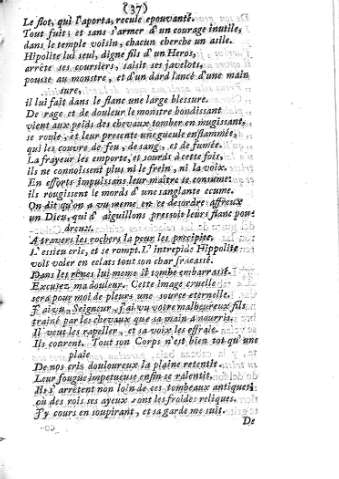 (37)
Le flot, qui l'aporta, recule epouvanté.
Tout fuit; et sans s'armer d'un courage inutile,
dans le temple voisin, chacun cherche un asile.
Hipolite lui seul, digne fils d'un Heros,
arrête ses coursiers, saisit ses javelots,
pousse au monstre, et d'un dard lancé d'une main
sure,
il lui fait dans le flanc une large blessure.
De rage et de douleur le monstre bondissant
vient aux pieds des chevaux tomber en mugissant,
se roule, et leur presente une gueule enflammée,
qui les couvre de feu, de sang, et de fumée.
La frayeur les emporte, et sourds à cette fois,
ils ne connoissent plus ni le frein, ni la voix.
En efforts impuissans leur maître se consume;
ils rougissent le mords d'une sanglante ecume.
On dit qu'on a vu meme, en ce desordre affreux
un Dieu, qui d'aiguillons pressoit leurs flanc pou-
dreux.
A travers les rochers la peur les precipite.
L'essieu crie, et se rompt. L'intrepide Hippolite
voit voler en eclats tout son char fracassé.
Dans les rênes lui meme il tombe embarrassé.
Excusez ma douleur. Cette image cruelle
sera pour moi de pleurs une source eternelle.
J'ai vu, Seigneur, j'ai vu votre malheureux fils
trainé par les chevaux que sa main a nourris.
Il veut les rapeller, et sa voix les effraie.
Ils courent. Tout son Corps n'est bien tot qu'une
plaie
De nos cris douloureux la plaine retentit.
Leur fougue impetueuse enfin se ralentit.
Ils s'arrêtent non loin de ces tombeaux antiques
où des rois ses ayeux sont les froides reliques.
J'y cours en soupirant, et sa garde me suit.
De